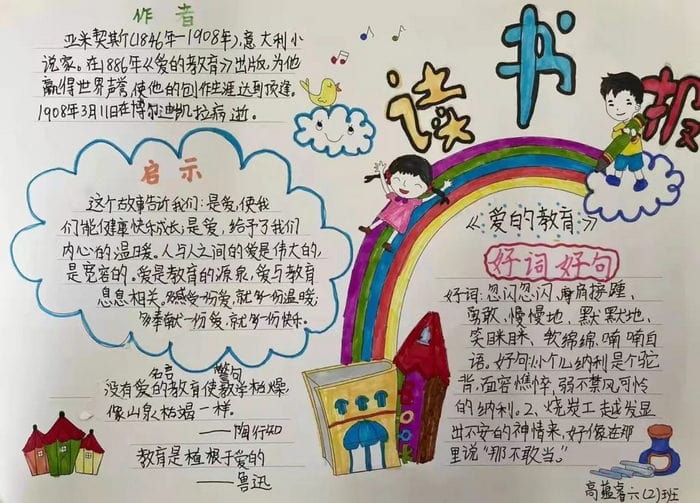 作者
亚米契斯(1846年-1908年),意大利小
说家。在1886年《爱的教育》出版,为他
赢得世界声誉,使他的创作生涯达到顶逢。
1908年3月11日在博尔迪凯拉病逝。
读书报
启示
这个故事告诉我们:是爱,使我
们能健康快乐成长;是爱,给予了我们
内心的温暖。人与人之间的爱是伟大的,
是宽容的。爱是教育的源泉,爱与教育
息息相关。多感受一份爱,就多一份温暖;
多奉献一份爱,就多一份快乐。
名言警句
没有爱的教育使教学枯燥,
像山泉枯竭一样。
——陶行知
教育是植根于爱的
——鲁迅
《爱的教育》
好词好句
好词:忽闪忽闪、摩肩接踵、
勇敢、慢慢地、默默地、
笑眯眯、软绵绵、喃喃自
语。好句:1.小个儿纳利是个驼
背,面容憔悴,弱不禁风,可怜
的纳利。2、烧炭工越发显
出不安的神情来,好像在那
里说“那不敢当。”
高蕴睿六(2)班